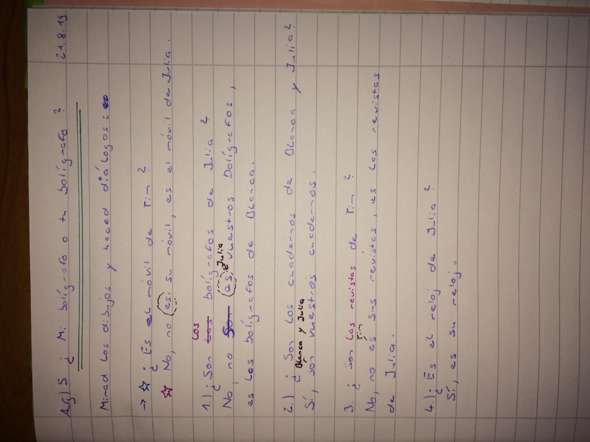 A.G) 5 ¿Mi bolígrafo o tu bolígrafo? 21.8.19
Mirad los dibujos y haced diálogos:
→ ☆ ¿Es el móvil de Tim?
☆ No, no es su móvil, es el móvil de Julia.
1.) ¿Son los bolígrafos de Julia?
Julia
No, no son es vuestros bolígrafos,
es los bolígrafos de Blanca.
2.) ¿Son los cuadernos de Blanca y Julia?
Blanca y Julia
Sí, son vuestros cuadernos.
3. ¿son los revistas de Tim?
Tim
No, no es sus revistas, es las revistas
de Julia.
4.) ¿Es el reloj de Julia?
Sí, es su reloj.